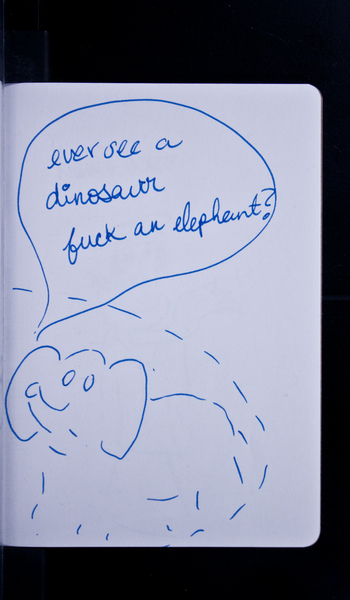 ever see a
dinosaur
fuck an elephant?